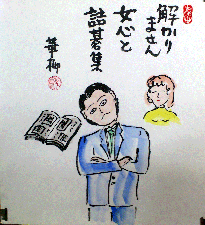 解かり
ません
女心と
詰碁集
華柳